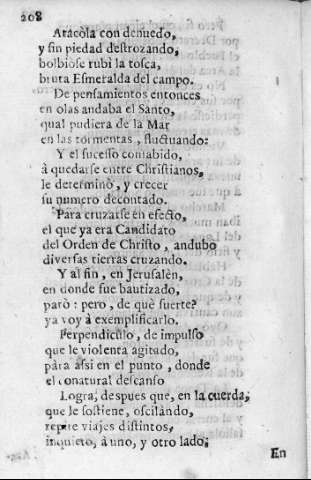 208
Atacòla con denuedo,
y sin piedad destrozando,
bolbiòse rubì la tosca,
bruta Esmeralda del campo.
De pensamientos entonces
en olas andaba el Santo,
qual pudiera de la Mar
en las tormentas, fluctuando:
Y el sucesso contabido,
à quedarse entre Christianos,
le determinò, y crecer
su numero decontado.
Para cruzarse en efecto,
el que ya era Candidato
del Orden de Christo, andubo
diversas tierras cruzando.
Y al fin, en Jerusalèn,
en donde fue bautizado,
parò: pero, de què suerte?
ya voy à exemplificarlo.
Perpendiculo, de impulso
que le violenta agitado,
pàra assi en el punto, donde
el conatural descanso
Logra, despues que, en la cuerda,
que le sostiene, oscilàndo,
repite viajes distintos,
inquieto, à uno, y otro lado;
En